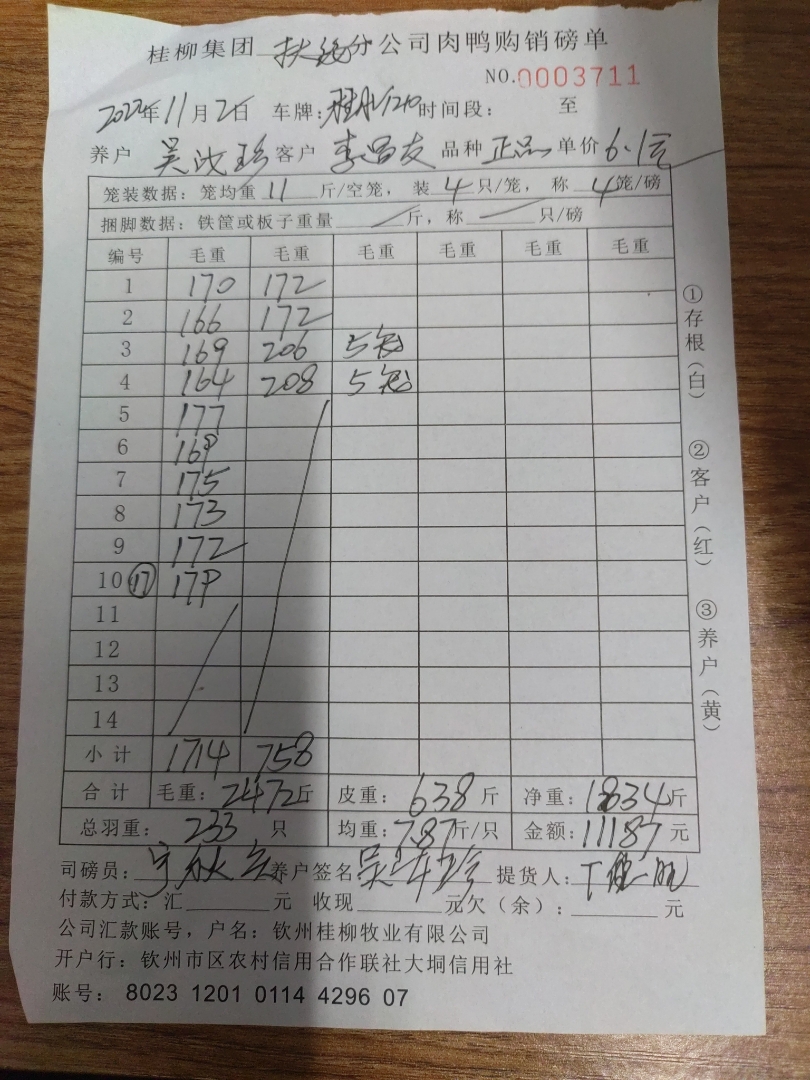 桂柳集团 扶绥分公司肉鸭购销磅单
NO.0003711
2022年11月2日 车牌: 时间段: 至
养户 吴 珍 客户 李昌友 品种 正品 单价 6.1元
笼装数据:笼均重 11 斤/空笼, 装 4 只/笼, 称 4 笼/磅
捆脚数据:铁筐或板子重量 / 斤,称 / 只/磅
编号 毛重 毛重 毛重 毛重 毛重 毛重
1 170 172
2 166 172
3 169 206 5笼
4 164 208 5笼
5 177
6 169
7 175
8 173
9 172
10 ⑰ 179
11
12
13
14
小计 1714 758
合计 毛重:2472斤 皮重:638斤 净重:1834斤
总羽重:233 只 均重:7.87斤/只 金额:11187元
司磅员: 养户签名 吴 珍 提货人:
付款方式:汇 元 收现 元欠(余): 元
公司汇款账号,户名:钦州桂柳牧业有限公司
开户行:钦州市区农村信用合作联社大垌信用社
账号: 8023 1201 0114 4296 07
①存根(白) ②客户(红) ③养户(黄)